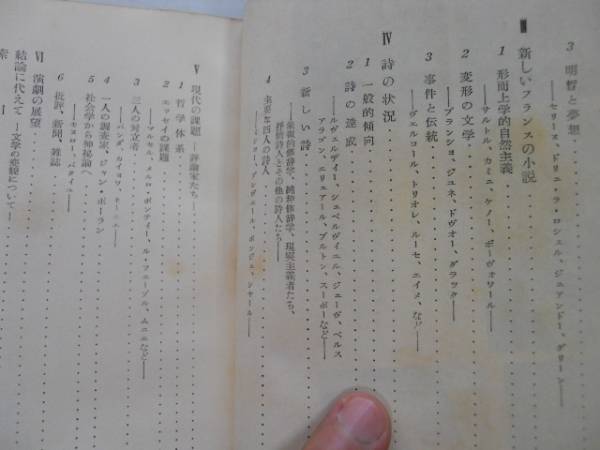 3 明晳と夢想
――セリーヌ、ドリュ・ラ・ロシェル、ジュアンドー、グリーン――
Ⅲ 新しいフランスの小説
1 形而上学的自然主義
――サルトル、カミュ、ケノー、ボーヴォワール――
2 変形の文学
――ブランショ、ジュネ、ドヴォー、グラック――
3 事件と伝統
――ヴェルコール、トリオレ、ルーセ、エイメ、など――
Ⅳ 詩の状況
1 一般的傾向
2 詩の達成
――ルヴェルディ、シュペルヴィエル、ジューヴ、ペルス
アラゴン、エリュアール、ブルトン、スーポーなど――
3 新しい詩
――象徴的修辞学、純粋修辞学、現実主義者たち、
抒情詩人とその他の詩人たち――
4 主要な四人の詩人
――ミショー、プレヴェール、ポンジュ、シャール――
Ⅴ 現代の課題 ―評論家たち―
1 哲学体系
――マルセル、メルロ・ポンティ、ル・フェーブル、ムニエなど――
2 エッセイの課題
3 三人の対立者
――バンダ、カイヨワ、
4 一人の調査家、ジャン・ポーラン
5 社会学から神秘論へ
――モヌロー、バタイユ――
6 批評、新聞、雑誌
Ⅵ 演劇の展望
結論に代えて ―文学の変貌について―
索